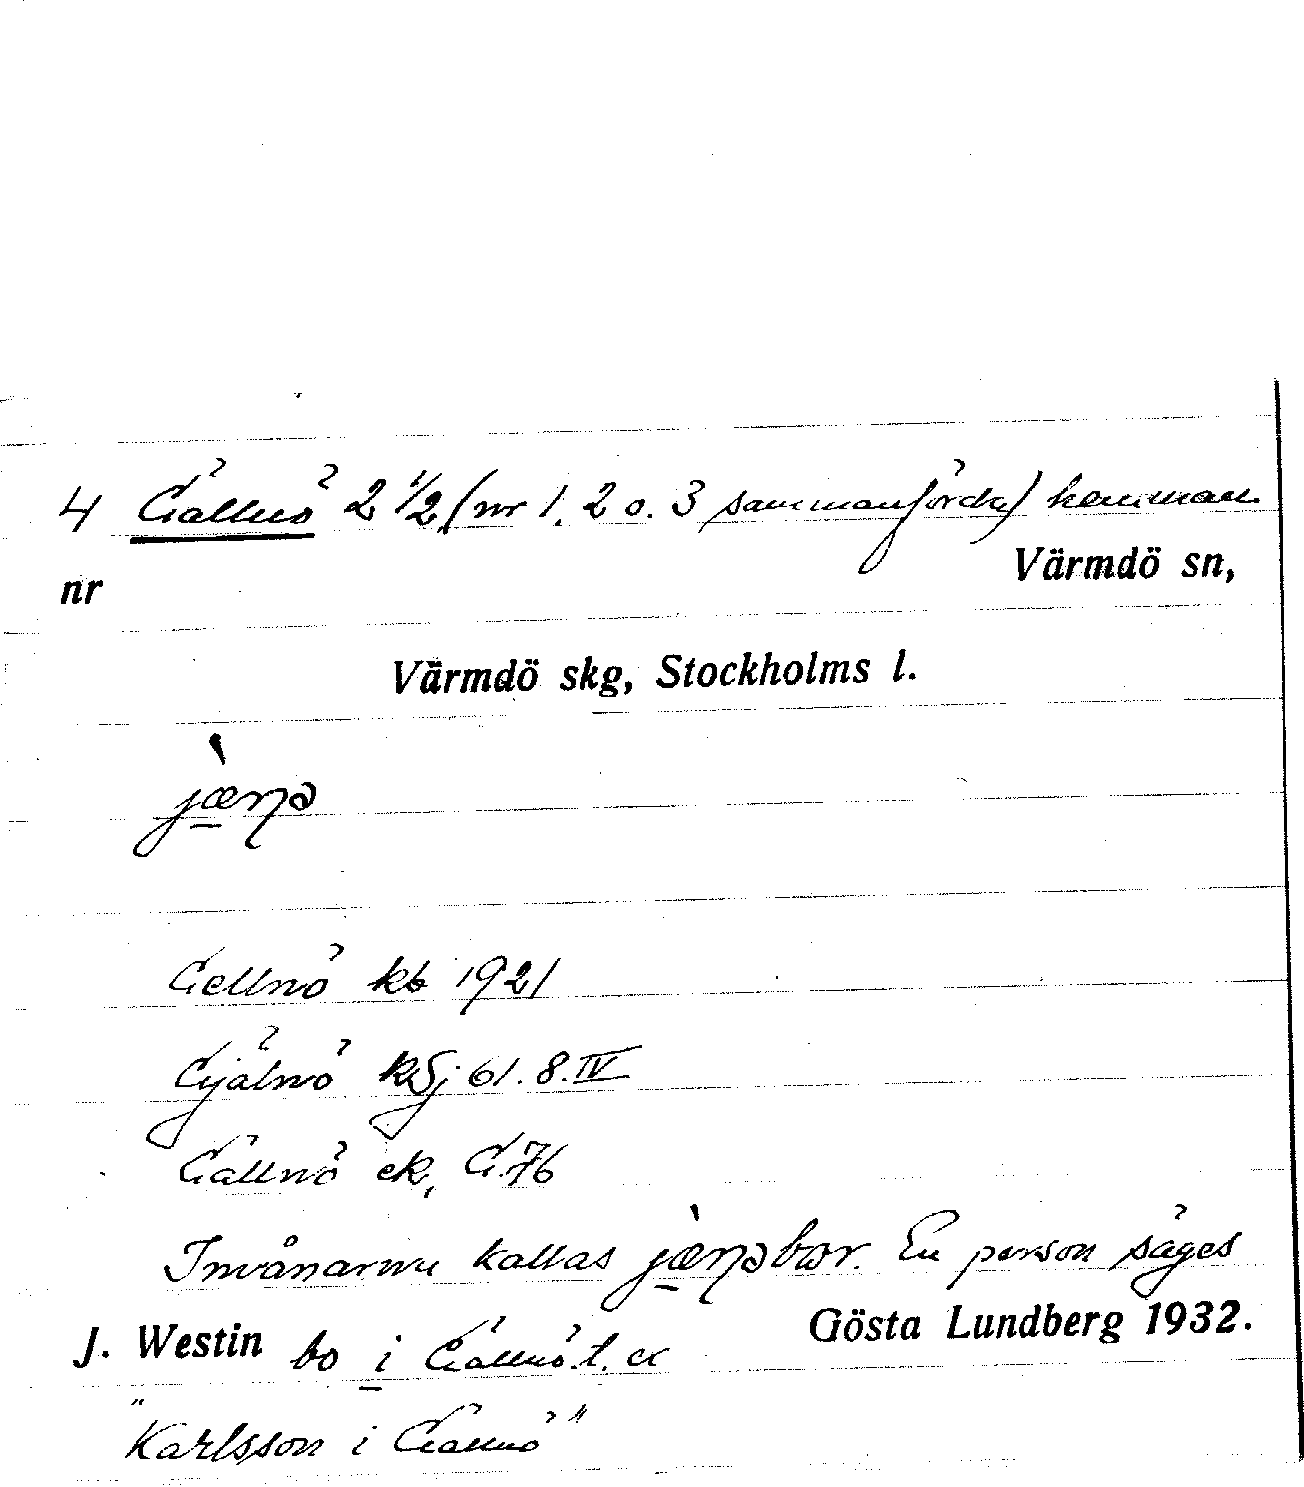 4 Gällnö 2 1/2 (nr 1, 2 o. 3 sammanförda) hemman
Värmdö sn,
nr
Värmdö skg, Stockholms l.
Gellnö kb 1921
Gjälnö kSj 61.8.IV
Gällnö ek, G.76
Invånarna kallas En person säges
J. Westin bo i Gällnö t. ex Gösta Lundberg 1932.
"Karlsson i Gällnö"